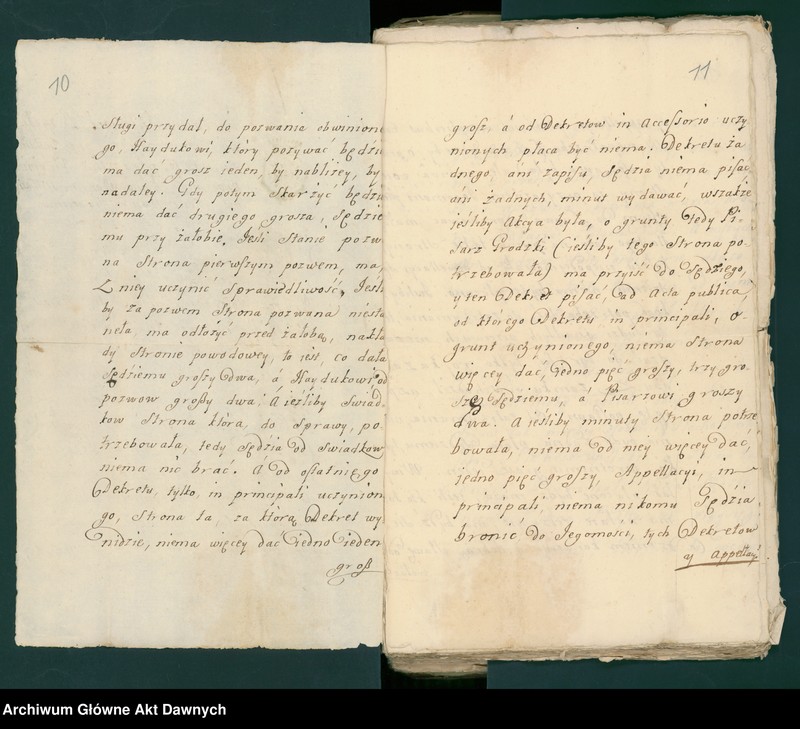 10
Sługi przydał, do pozwania obwinione
go, Haydukowi, który pozywać będzie
ma dać grosz ieden, by nabliżey, by
nadaley. Gdy potym skarżyć będzie
niema dać drugiego grosza, Sędzie
mu przy żałobie. Jeśli stanie pozw
na Strona pierwszym pozwem, ma,
z niey uczynić sprawiedliwość, Jeśli
by za pozwem Strona pozwana niesta
neła, ma odłożyć przed żałobą, nakła
dy Stronie powodowey, to iest, co dała
Sędziemu groszy dwa, á Haydukowi od
pozwow groszy dwa. A ieśliby Swiad-
kow Strona która, do sprawy, po-
trzebowała, tedy Sędzia od Swiadkow
niema nic brać. A od ostatniego
Dekretu, tylko, in principali uczynion
go, Strona ta, za którą Dekret wy
nidzie, niema więcey dać iedno ieden
grosz
11
grosz, á od Dekretow in Accessorio uczy
nionych płaca być niema. Dekretu ża
dnego, áni zapisu, Sędzia niema pisać
áni żadnych, minut wydawać, wszakże
ieśliby Akcya była, o grunty tedy Pi-
sarz Grodzki (ieśliby tego Strona po-
trzebowała) ma przyiść do Sędziego,
y ten Dekret pisać, ad Acta publica,
od którego Dekretu in principali, o-
grunt uczynionego, niema Strona
więcey dać, iedno pięć groszy, trzy gro-
szy Sędziemu, á Pisarzowi groszy
dwa. A ieśliby minuty Strona potrze
bowała, niema od niey więcey dać,
jedno pięć groszy, Appellacyi, in
principali, niema nikomu Sędzia
bronić do Jegomości, tych Dekretow
y Appellacyi
Archiwum Główne Akt Dawnych